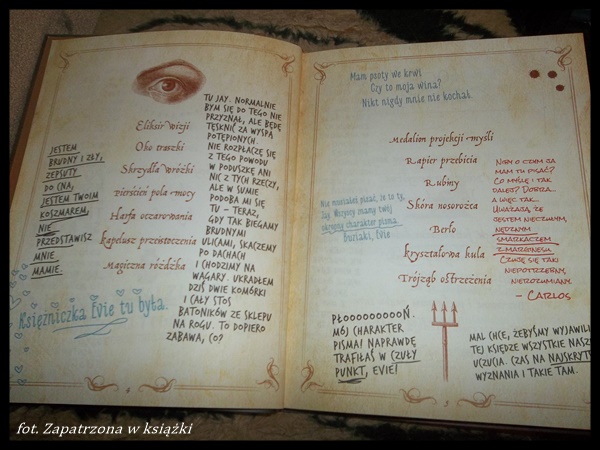 Eliksir wizji
Oko traszki
Skrzydła wróżki
Pierścień pola mocy
Harfa oczarowania
Kapelusz przeistoczenia
Magiczna różdżka
JESTEM
BRUDNY I ZŁY,
ZEPSUTY
DO CNA,
JESTEM TWOIM
KOSZMAREM,
NIE
PRZEDSTAWISZ
MNIE
MAMIE.
Księżniczka Evie tu była.
TU JAY. NORMALNIE
BYM SIĘ DO TEGO NIE
PRZYZNAŁ, ALE BĘDĘ
TĘSKNIĆ ZA WYSPĄ
POTĘPIONYCH.
NIE ROZPŁACZĘ SIĘ
Z TEGO POWODU
W PODUSZKĘ ANI
NIC Z TYCH RZECZY,
ALE W SUMIE
PODOBA MI SIĘ
TU – TERAZ,
GDY TAK BIEGAMY
BRUDNYMI
ULICAMI, SKACZEMY
PO DACHACH
I CHODZIMY NA
WAGARY. UKRADŁEM
DZIŚ DWIE KOMÓRKI
I CAŁY STOS
BATONIKÓW ZE SKLEPU
NA ROGU. TO DOPIERO
ZABAWA, CO?
4
Mam psoty we krwi
Czy to moja wina?
Nikt nigdy mnie nie kochał
Medalion projekcji myśli
Rapier przebicia
Rubiny
Skóra nosorożca
Berło
Kryształowa kula
Trójząb ostrzeżenia
Nie musiałeś pisać, że to ty,
Jay. Wszyscy mamy twój
okropny charakter pisma.
Buziaki, Evie
NIBY O CZYM JA
MAM TU PISAĆ?
CO MYŚLĘ I TAK
DALEJ? DOBRA...
A WIĘC TAK...
UWAŻAJĄ, ŻE
JESTEM NIECZUŁYM,
NĘDZNYM
SMARKACZEM
Z MARGINESU.
CZUJĘ SIĘ TAKI
NIEPOTRZEBNY,
NIEROZUMIANY.
– CARLOS
PŁOOOOOOOOOŃ.
MÓJ CHARAKTER
PISMA! NAPRAWDĘ
TRAFIŁAŚ W CZUŁY
PUNKT, EVIE!
MAL CHCE, ŻEBYŚMY WYJAWILI
TEJ KSIĘDZE WSZYSTKIE NASZE
UCZUCIA. CZAS NA NAJSKRYTSZE
WYZNANIA I TAKIE TAM.
5
fot. Zapatrzona w książki